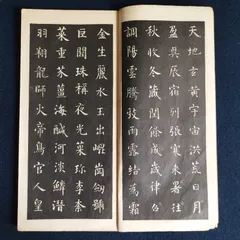 天地玄黃宇宙洪荒日月
盈昃辰宿列張寒來暑往
秋收冬藏閏餘成歲律呂
調陽雲騰致雨露結為霜
金生麗水玉出崑崗劒號
巨闕珠稱夜光菓珍李柰
菜重芥薑海鹹河淡鱗潛
羽翔龍師火帝鳥官人皇